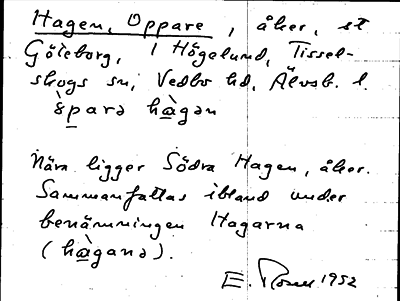 Hagen, Oppare, åker, st
Göteborg, 1 Högelund, Tissel-
skogs sn, Vedbo hd, Älvsb. l.
ò̀parə hàgən
Nära ligger Södra Hagen, åker.
Sammanfattas ibland under
benämningen Hagarna
(hàganə).
E. 1952